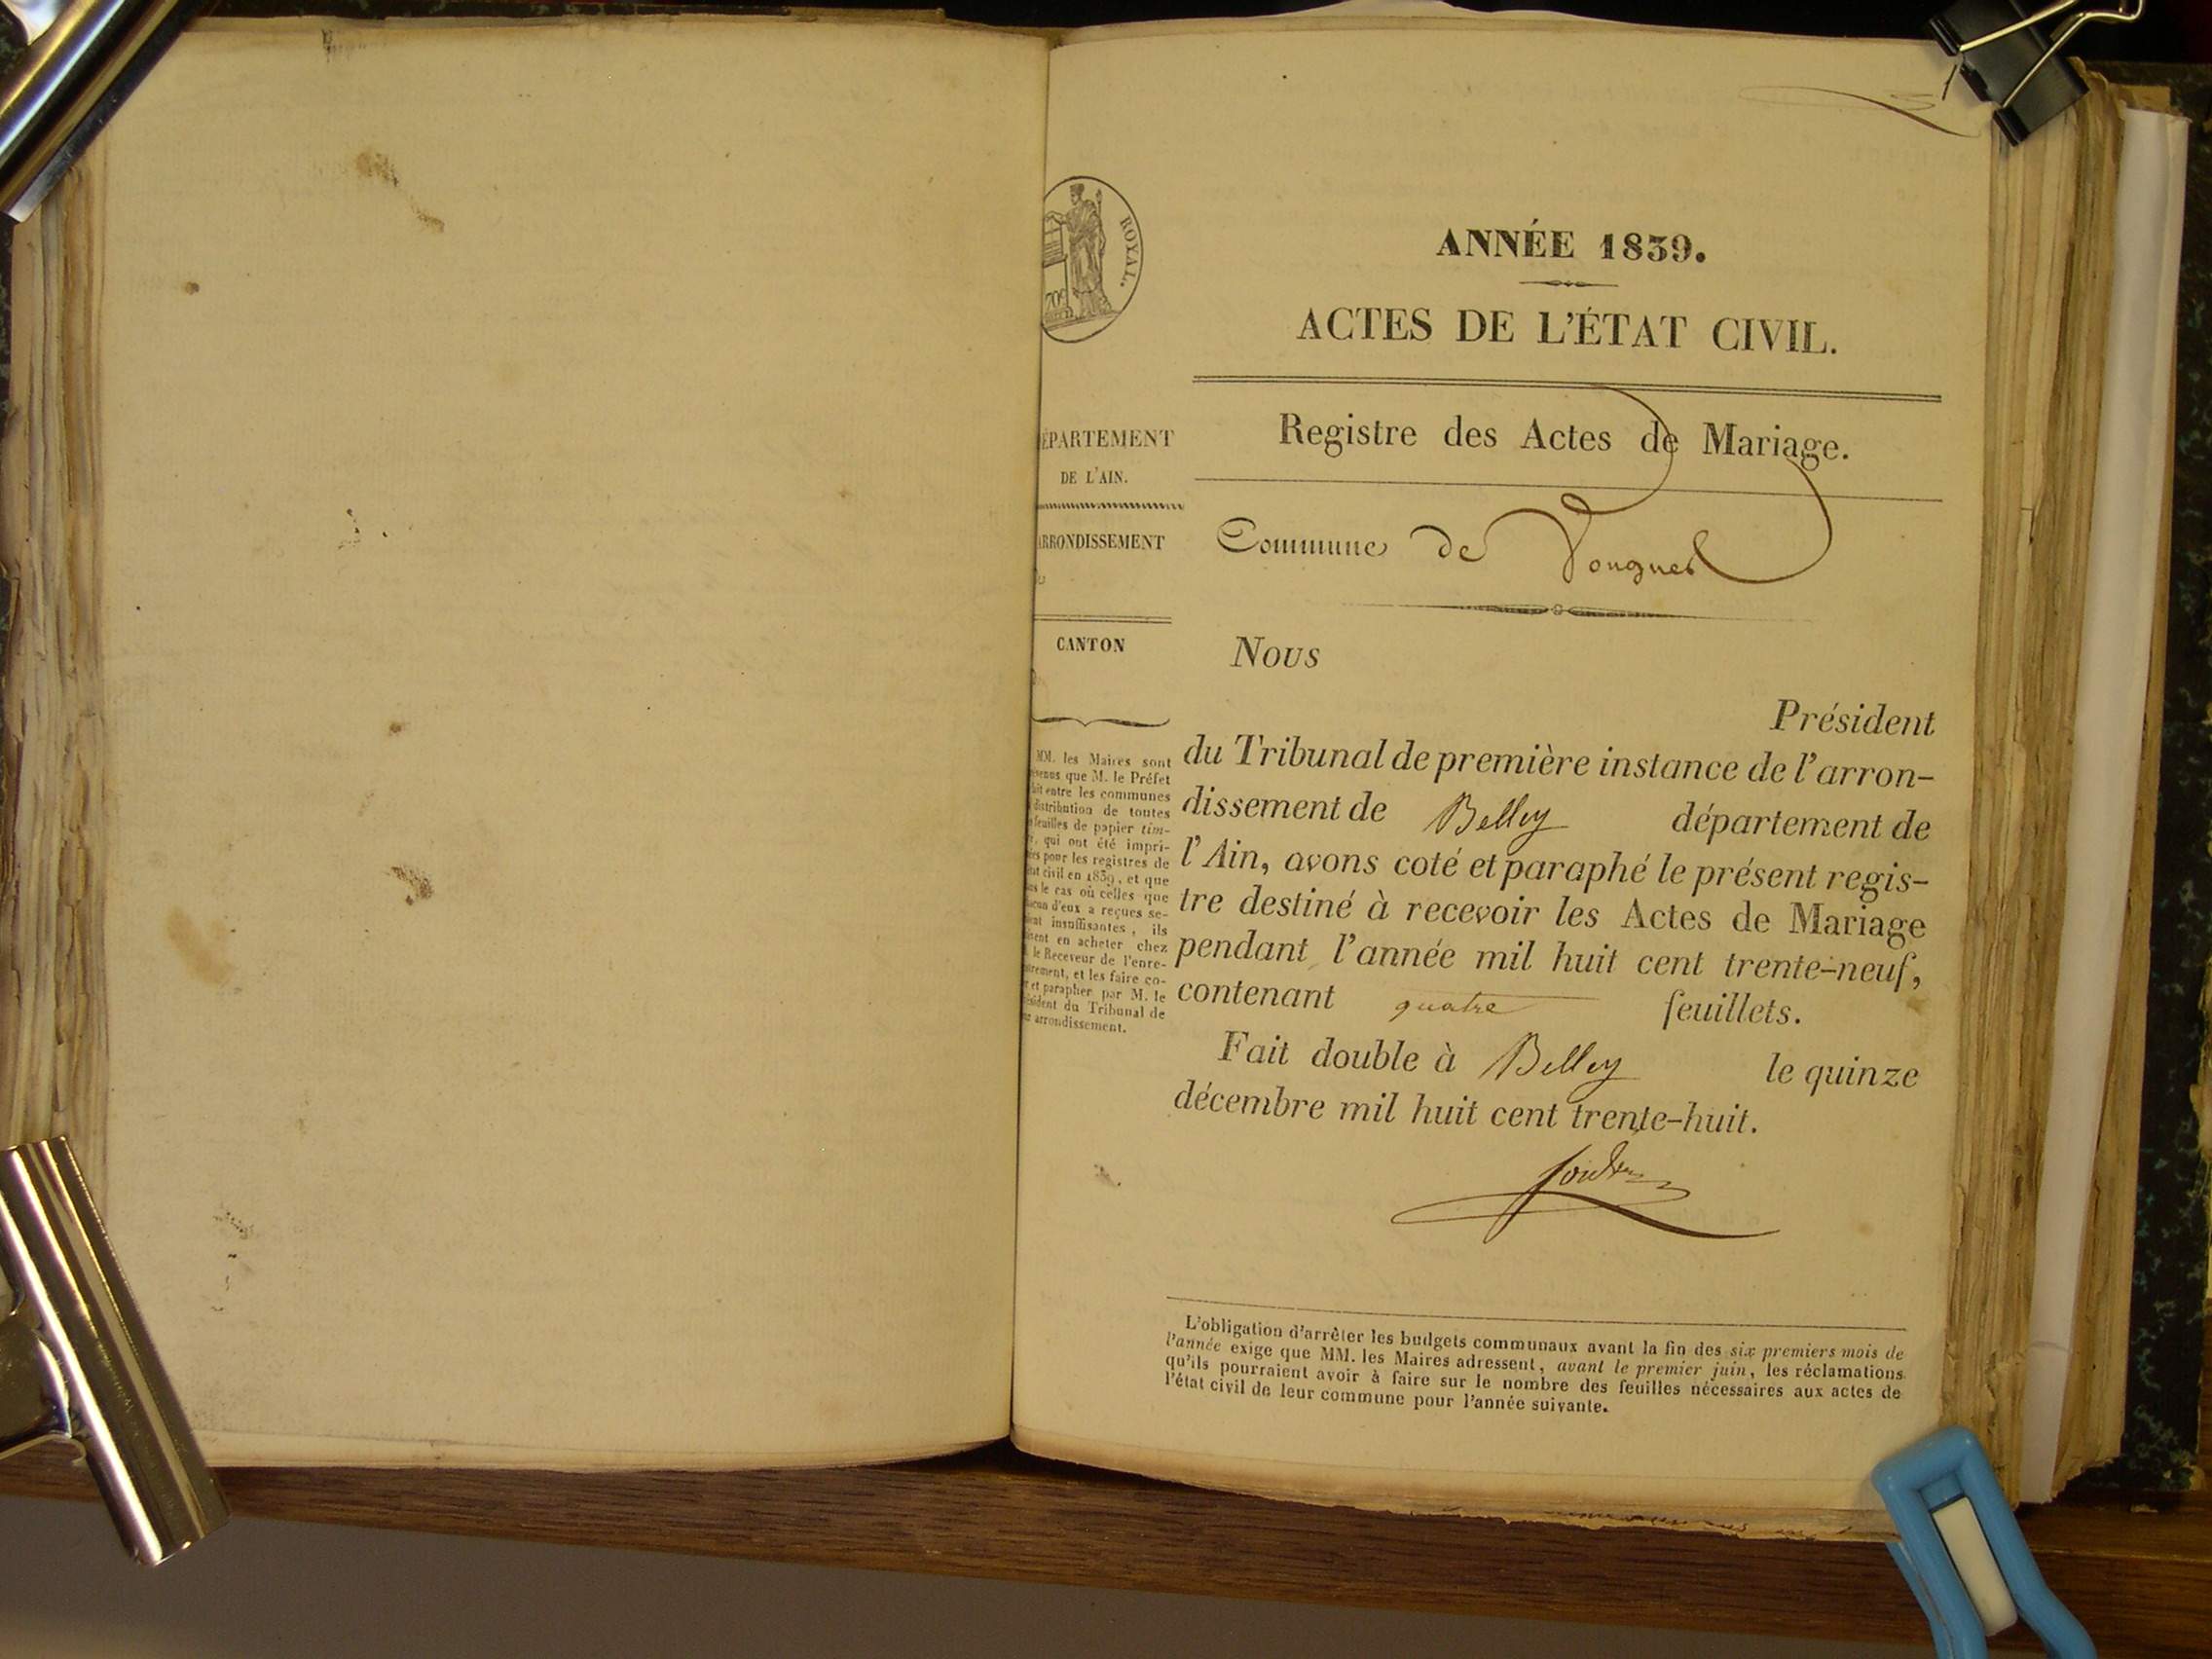 ROYAL.
ANNÉE 1839.
ACTES DE L'ÉTAT CIVIL.
ÉPARTEMENT
DE L'AIN.
Registre des Actes de Mariage.
ARRONDISSEMENT
Commune de Vongnes
CANTON
MM. les Maires sont
que M. le Préfet
entre les communes
distribution de toutes
feuilles de papier tim-
qui ont été impri-
pour les registres de
civil en 1839, et que
le cas où celles que
d'eux a reçues se-
insuffisantes, ils
en acheter chez
le Receveur de l'enre-
et les faire co-
et parapher par M. le
du Tribunal de
arrondissement.
Nous
Président
du Tribunal de première instance de l'arron-
dissement de Belley département de
l'Ain, avons coté et paraphé le présent regis-
tre destiné à recevoir les Actes de Mariage
pendant l'année mil huit cent trente-neuf,
contenant quatre feuillets.
Fait double à Belley le quinze
décembre mil huit cent trente-huit.
L'obligation d'arrêter les budgets communaux avant la fin des six premiers mois de
l'année exige que MM. les Maires adressent, avant le premier juin, les réclamations
qu'ils pourraient avoir à faire sur le nombre des feuilles nécessaires aux actes de
l'état civil de leur commune pour l'année suivante.